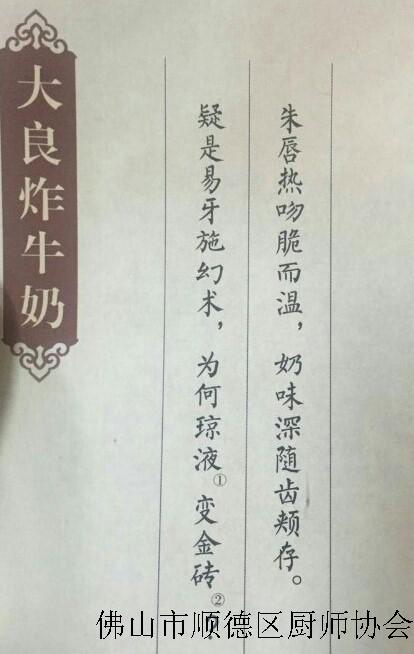 大良炸牛奶
朱唇热吻脆而温，奶味深随齿颊存。
疑是易牙施幻术，为何琼液①变金砖②？
佛山市顺德区厨师协会